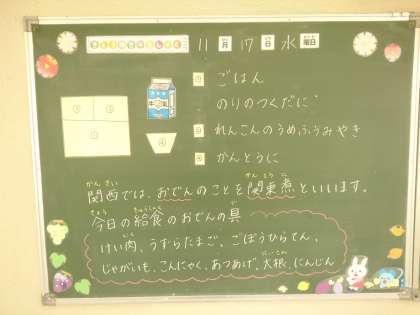 きょうのきゅうしょく 11月17日水曜日
① ごはん
のりのつくだに
② れんこんのうめふうみやき
③ かんとうに
関西では、おでんのことを関東煮といいます。
今日の給食のおでんの具
けい肉、うずらたまご、ごぼうひらてん、
じゃがいも、こんにゃく、あつあげ、大根、にんじん